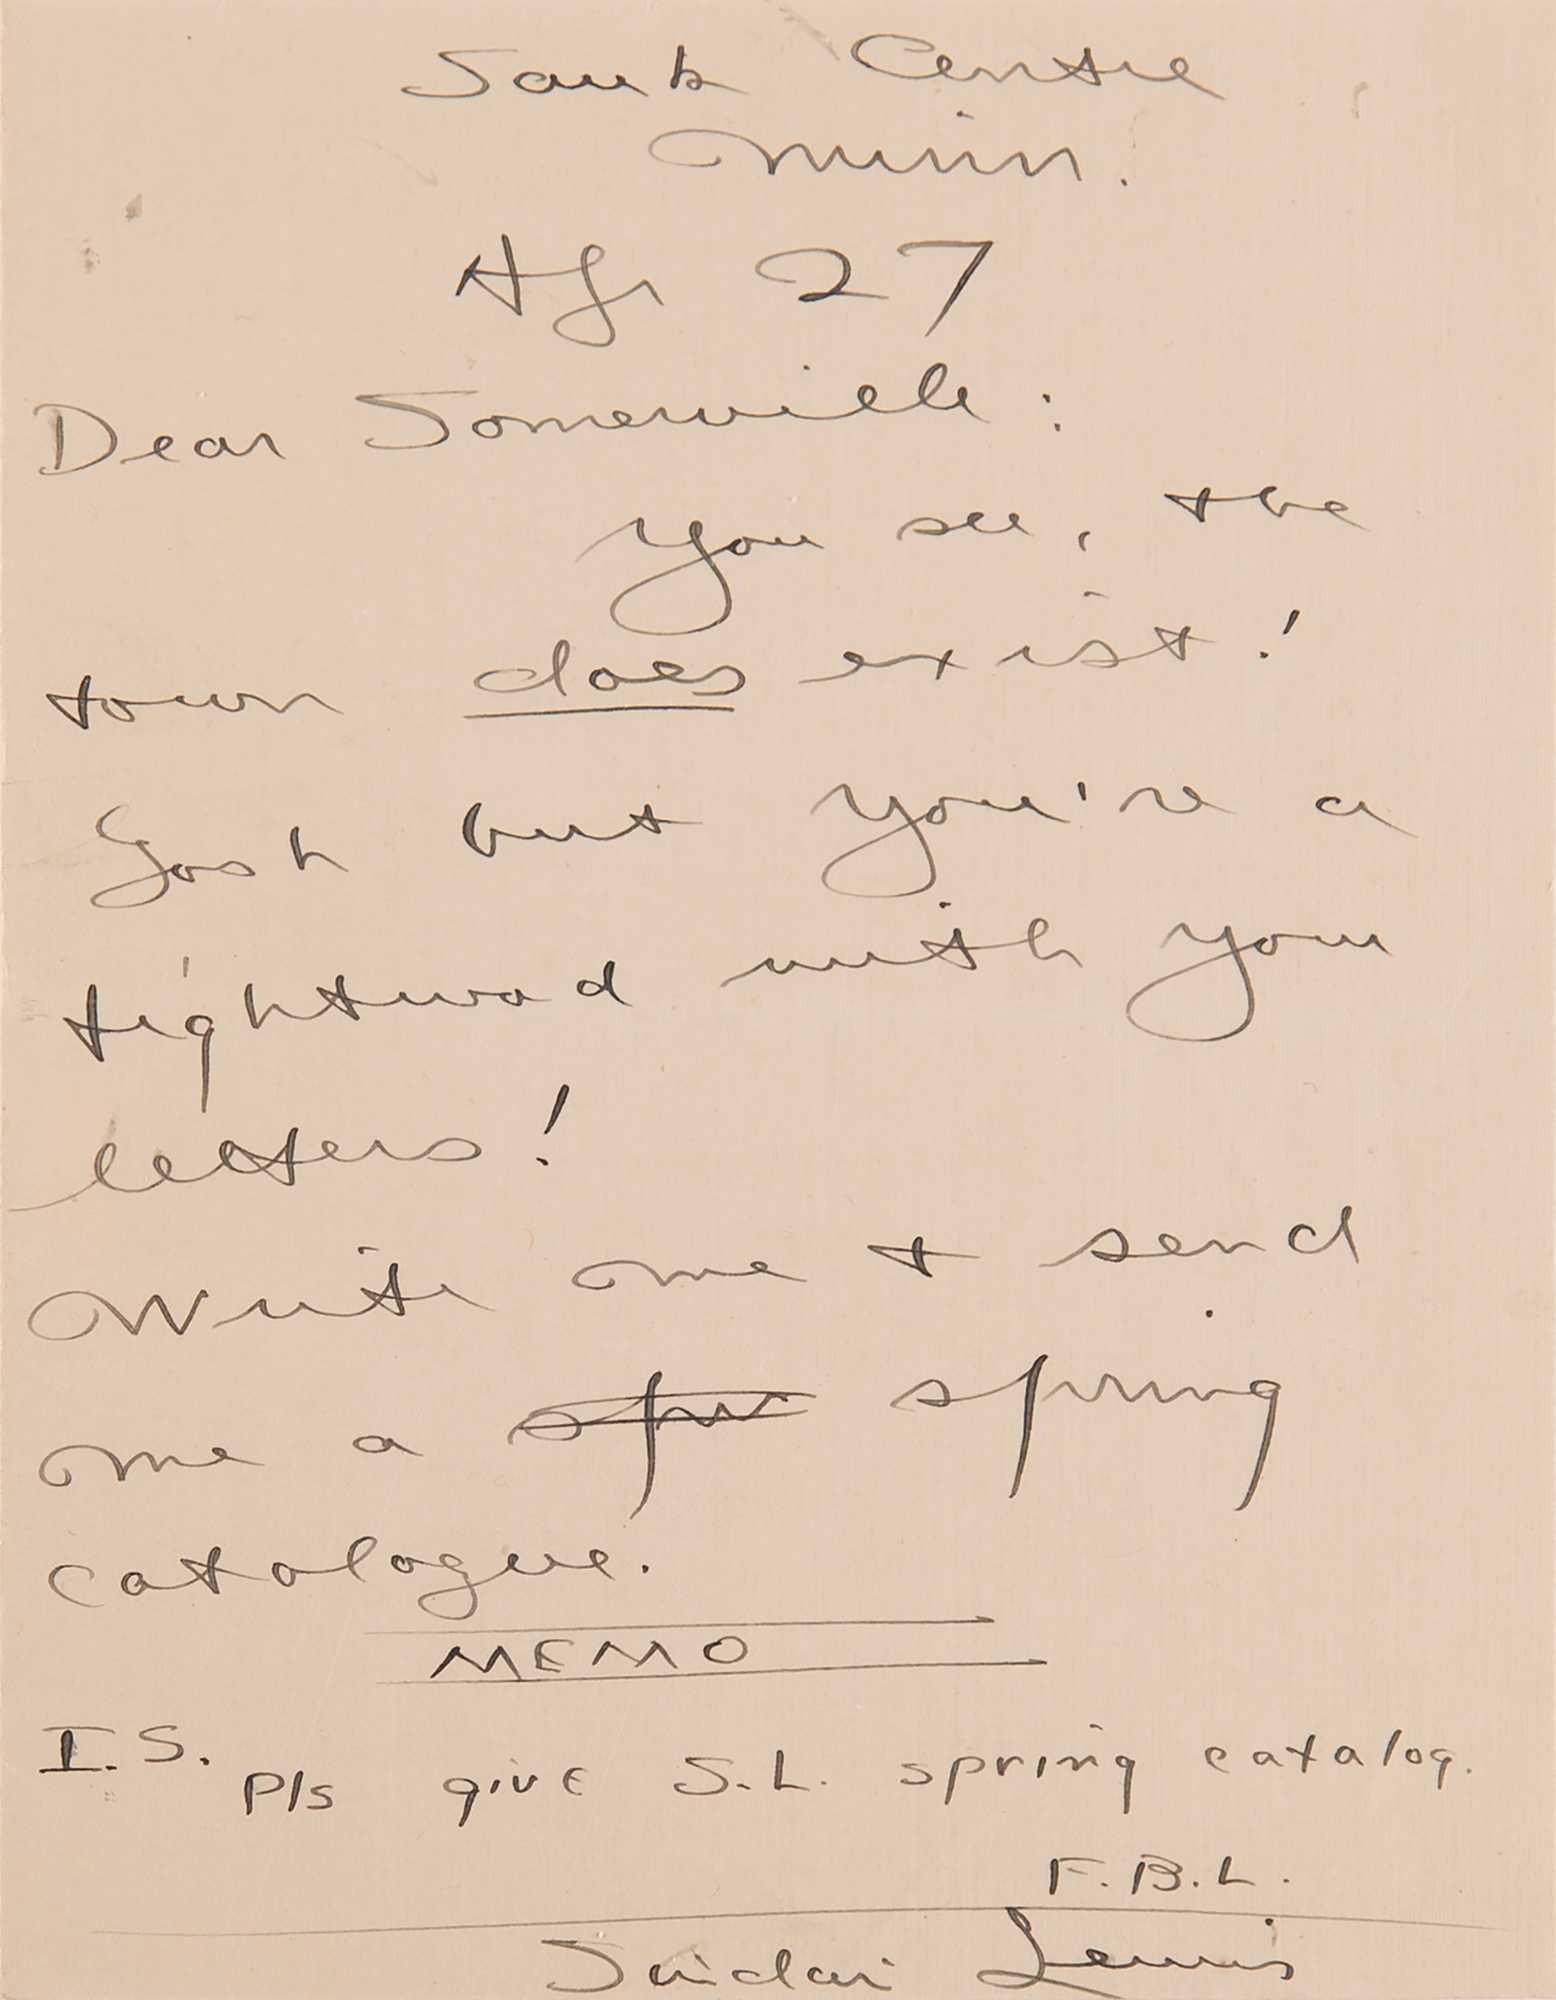 Sauk Centre
Minn.
Apr 27
Dear Somerville:
You see, the
town does exist!
Gosh but you're a
tightwad with your
letters!
Write me + send
me a spri spring
catalogue.
MEMO
I.S.
Pls give S.L. spring catalog.
F.B.L.
Sinclair Lewis